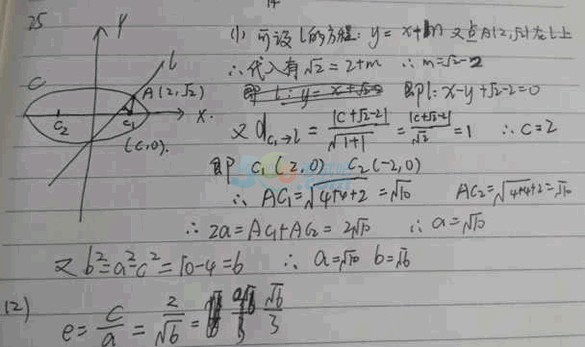 25
y
l
C
A(2,√2)
C₂
C₁
x
(C,0).
(1) 可设l的方程: y=x+m 又点A(2,√2)在l上
∴代入有√2=2+m ∴m=√2-2
即l: y=x+√2-2 即l: x-y+√2-2=0
又d_{C₁→l}=|C+√2-2|/√(1+1)=|C+√2-2|/√2=1 ∴C=2
即 C₁(2,0) C₂(-2,0)
∴AC₁=√(4+4+2)=√10 AC₂=√(4+4+2)=√10
∴2a=AC₁+AC₂=2√10 ∴a=√10
又b²=a²-c²=10-4=6 ∴a=√10 b=√6
(2)
e=C/a=2/√6= √6/3